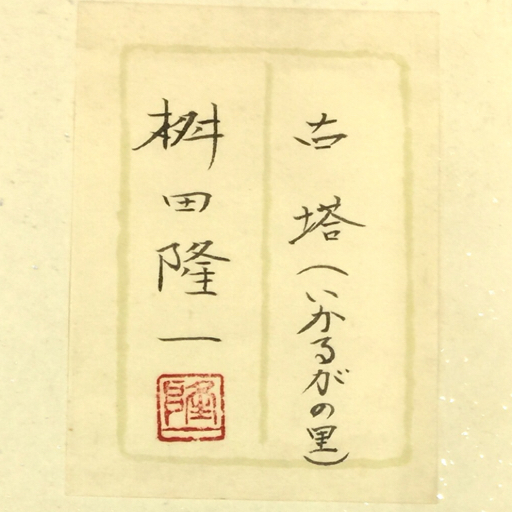 古塔(いかるがの里)
桝田隆一
隆一